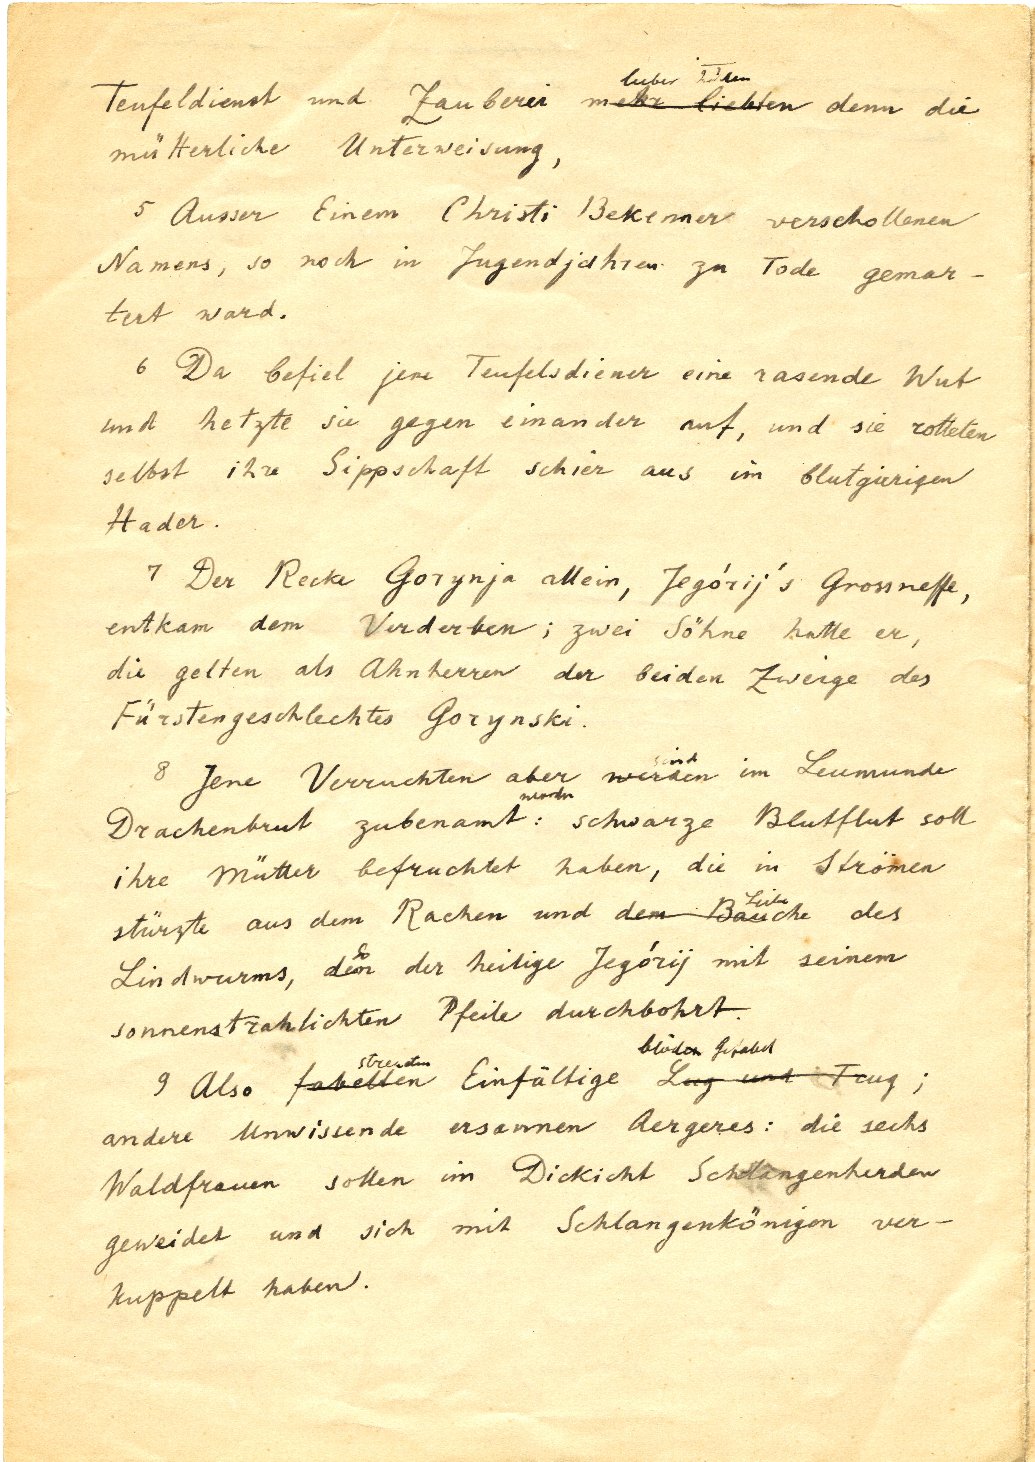 Teufeldienst und Zauberei lieber ~~mehr liebten~~ denn die
mütterliche Unterweisung,
5 Ausser Einem Christi Bekenner verschollenen
Namens, so noch in Jugendjahren zu Tode gemar-
tert ward.
6 Da befiel jene Teufelsdiener eine rasende Wut
und hetzte sie gegen einander auf, und sie rotteten
selbst ihre Sippschaft schier aus im blutgierigen
Hader.
7 Der Recke Gorynja allein, Jegórij's Grossneffe,
entkam dem Verderben; zwei Söhne hatte er,
die gelten als Ahnherren der beiden Zweige des
Fürstengeschlechtes Gorynski.
8 Jene Verruchten aber ~~werden~~ sind im Leumunde
Drachenbrut zubenamt worden: schwarze Blutflut soll
ihre Mütter befruchtet haben, die in Strömen
stürzte aus dem Rachen und ~~dem Bauche~~ Leibe des
Lindwurms, den der heilige Jegórij mit seinem
sonnenstrahlichten Pfeile durchbohrt.
9 Also ~~fabelten~~ streuten Einfältige ~~Lug und Trug~~ blöden Gefabel;
andere Unwissende ersannen Aergeres: die sechs
Waldfrauen sollen im Dickicht Schlangenherden
geweidet und sich mit Schlangenkönigen ver-
kuppelt haben.